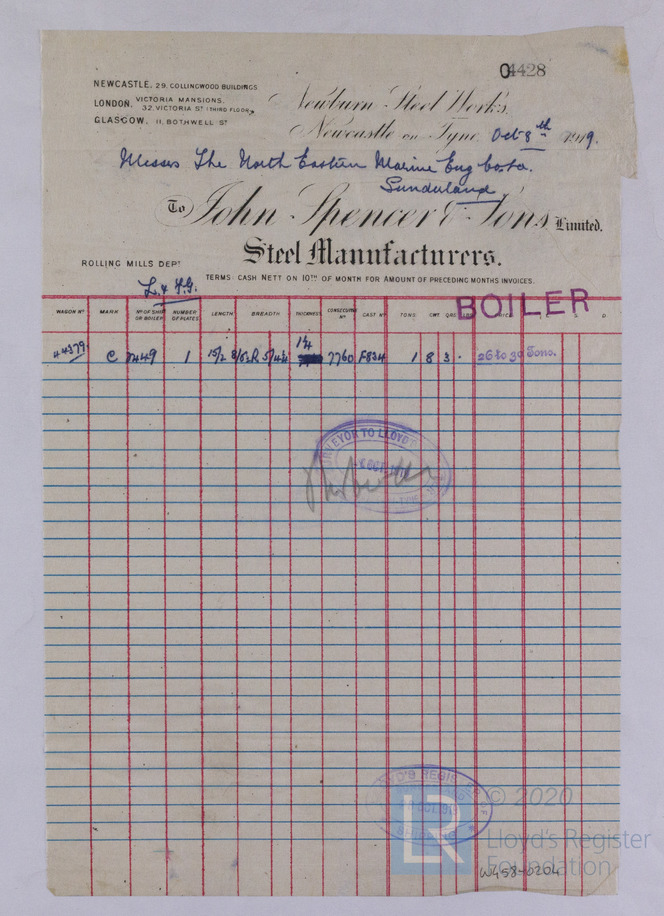 04428
NEWCASTLE, 29, COLLINGWOOD BUILDINGS
LONDON, VICTORIA MANSIONS,
32, VICTORIA ST (THIRD FLOOR)
GLASGOW, 11, BOTHWELL ST
Newburn Steel Works,
Newcastle on Tyne, Oct 8th 1919.
Messrs The North Eastern Marine Eng Co Ltd.
Sunderland
To John Spencer & Sons Limited.
Steel Manufacturers.
ROLLING MILLS DEPT
TERMS: CASH NETT ON 10TH OF MONTH FOR AMOUNT OF PRECEDING MONTHS INVOICES.
BOILER
WAGON No MARK No OF SHIP OR BOILER NUMBER OF PLATES LENGTH BREADTH THICKNESS CONSECUTIVE No CAST No TONS CWT QRS D
1¼
44379 C 2449 1 15/2 7760 F834 1 8 3 . 26 to 30 Tons.
SURVEYOR TO LLOYD'S
OCT
LLOYD'S REGISTER OF
OCT 1919
SHIPPING
LR
© 2020
Lloyd's Register
Foundation
W458-0204